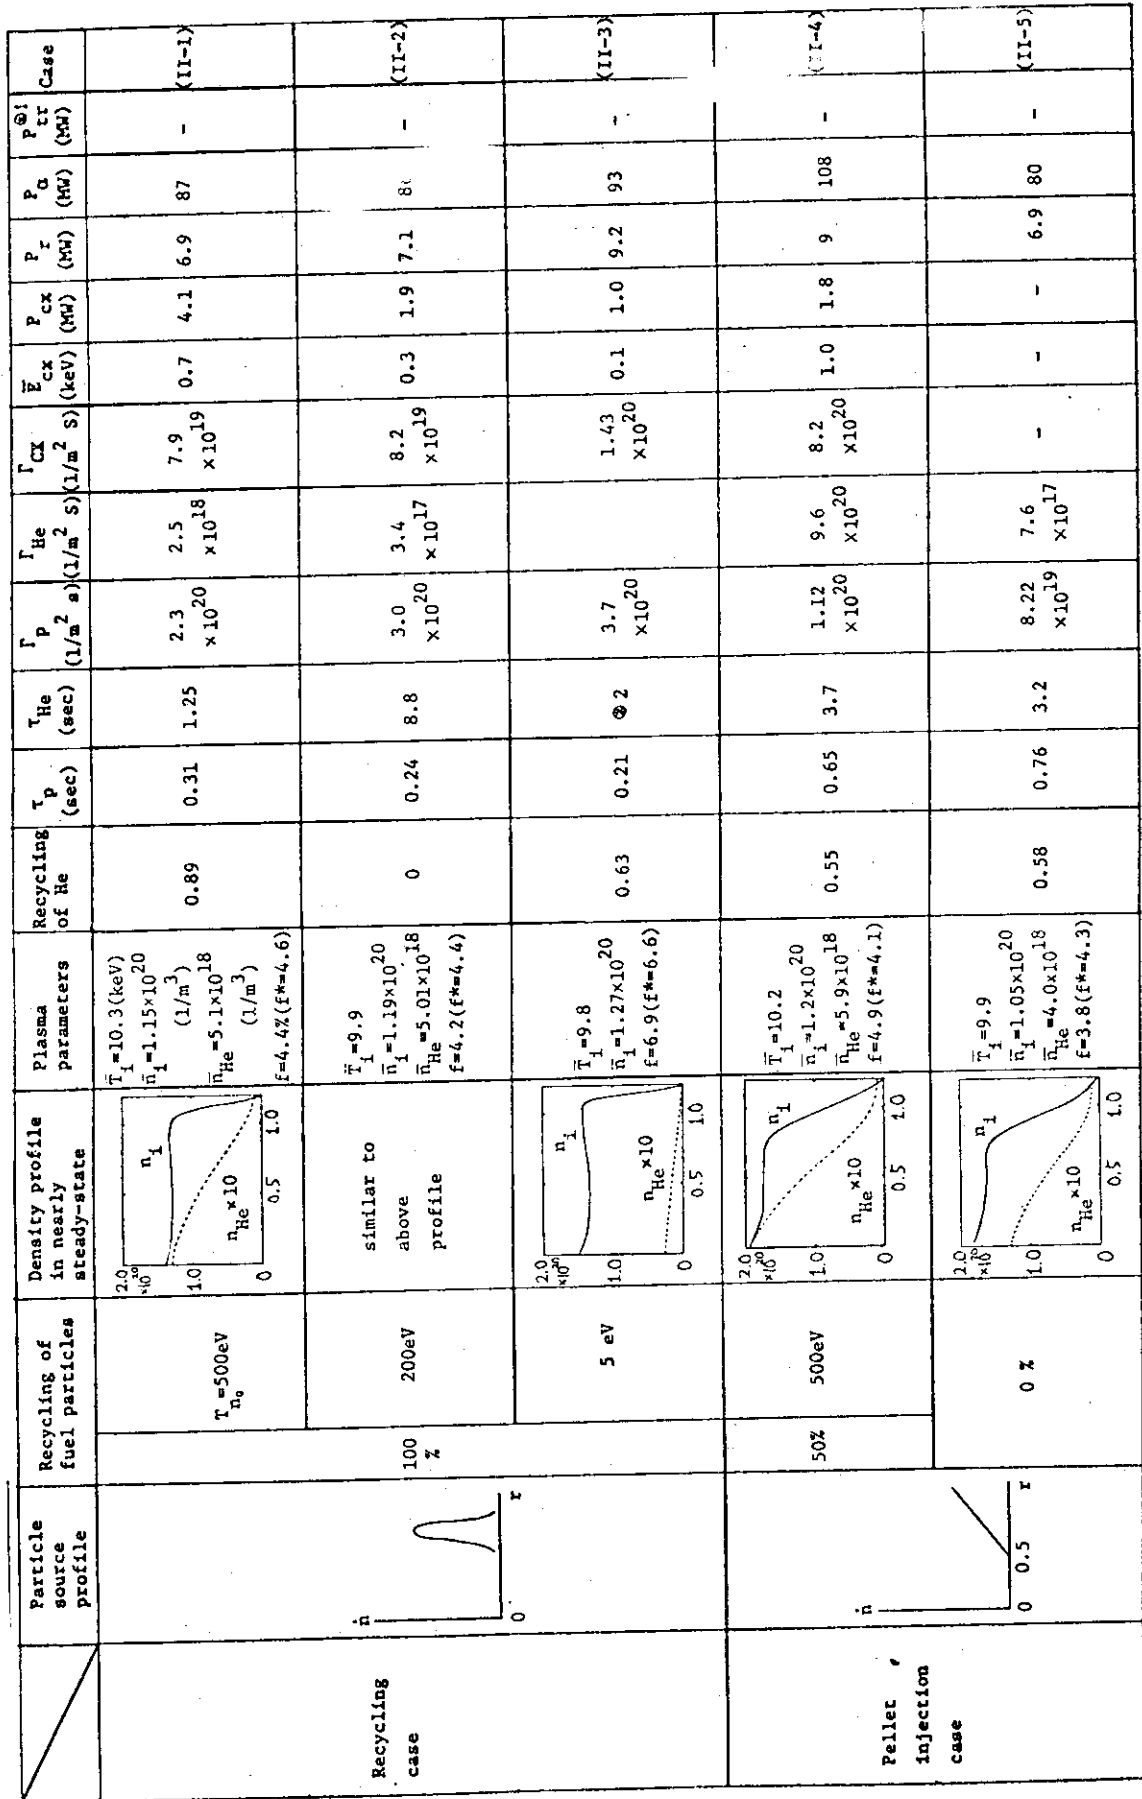 Particle source profile
Recycling of fuel particles
Density profile in nearly steady-state
Plasma parameters
Recycling of He
τp (sec)
τHe (sec)
Γp (1/m² s)
ΓHe (1/m² s)
ΓCX (1/m² S)
E̅cx (keV)
Pcx (MW)
Pr (MW)
Pα (MW)
(MW)
Case
Recycling case
ṅ
0
r
100 %
Tn₀=500eV
2.0
×10²⁰
1.0
0
ni
nHe×10
0.5
1.0
T̅i=10.3(keV)
n̅i=1.15×10²⁰
(1/m³)
n̅He=5.1×10¹⁸
(1/m³)
f=4.4%(f*=4.6)
0.89
0.31
1.25
2.3 ×10²⁰
2.5 ×10¹⁸
7.9 ×10¹⁹
0.7
4.1
6.9
87
-
(II-1)
200eV
similar to above profile
T̅i=9.9
n̅i=1.19×10²⁰
n̅He=5.01×10¹⁸
f=4.2(f*=4.4)
0
0.24
8.8
3.0 ×10²⁰
3.4 ×10¹⁷
8.2 ×10¹⁹
0.3
1.9
7.1
-
(II-2)
5 eV
2.0
×10²⁰
1.0
0
ni
nHe×10
0.5
1.0
T̅i=9.8
n̅i=1.27×10²⁰
f=6.9(f*=6.6)
0.63
0.21
2
3.7 ×10²⁰
1.43 ×10²⁰
0.1
1.0
9.2
93
-
(II-3)
Pellet injection case
ṅ
0
0.5
r
50%
500eV
2.0
×10²⁰
1.0
0
ni
nHe×10
0.5
1.0
T̅i=10.2
n̅i=1.2×10²⁰
n̅He=5.9×10¹⁸
f=4.9(f*=4.1)
0.55
0.65
3.7
1.12 ×10²⁰
9.6 ×10²⁰
8.2 ×10²⁰
1.0
1.8
9
108
-
(II-4)
0 %
2.0
×10²⁰
1.0
0
ni
nHe×10
0.5
1.0
T̅i=9.9
n̅i=1.05×10²⁰
n̅He=4.0×10¹⁸
f=3.8(f*=4.3)
0.58
0.76
3.2
8.22 ×10¹⁹
7.6 ×10¹⁷
-
-
-
6.9
80
-
(II-5)